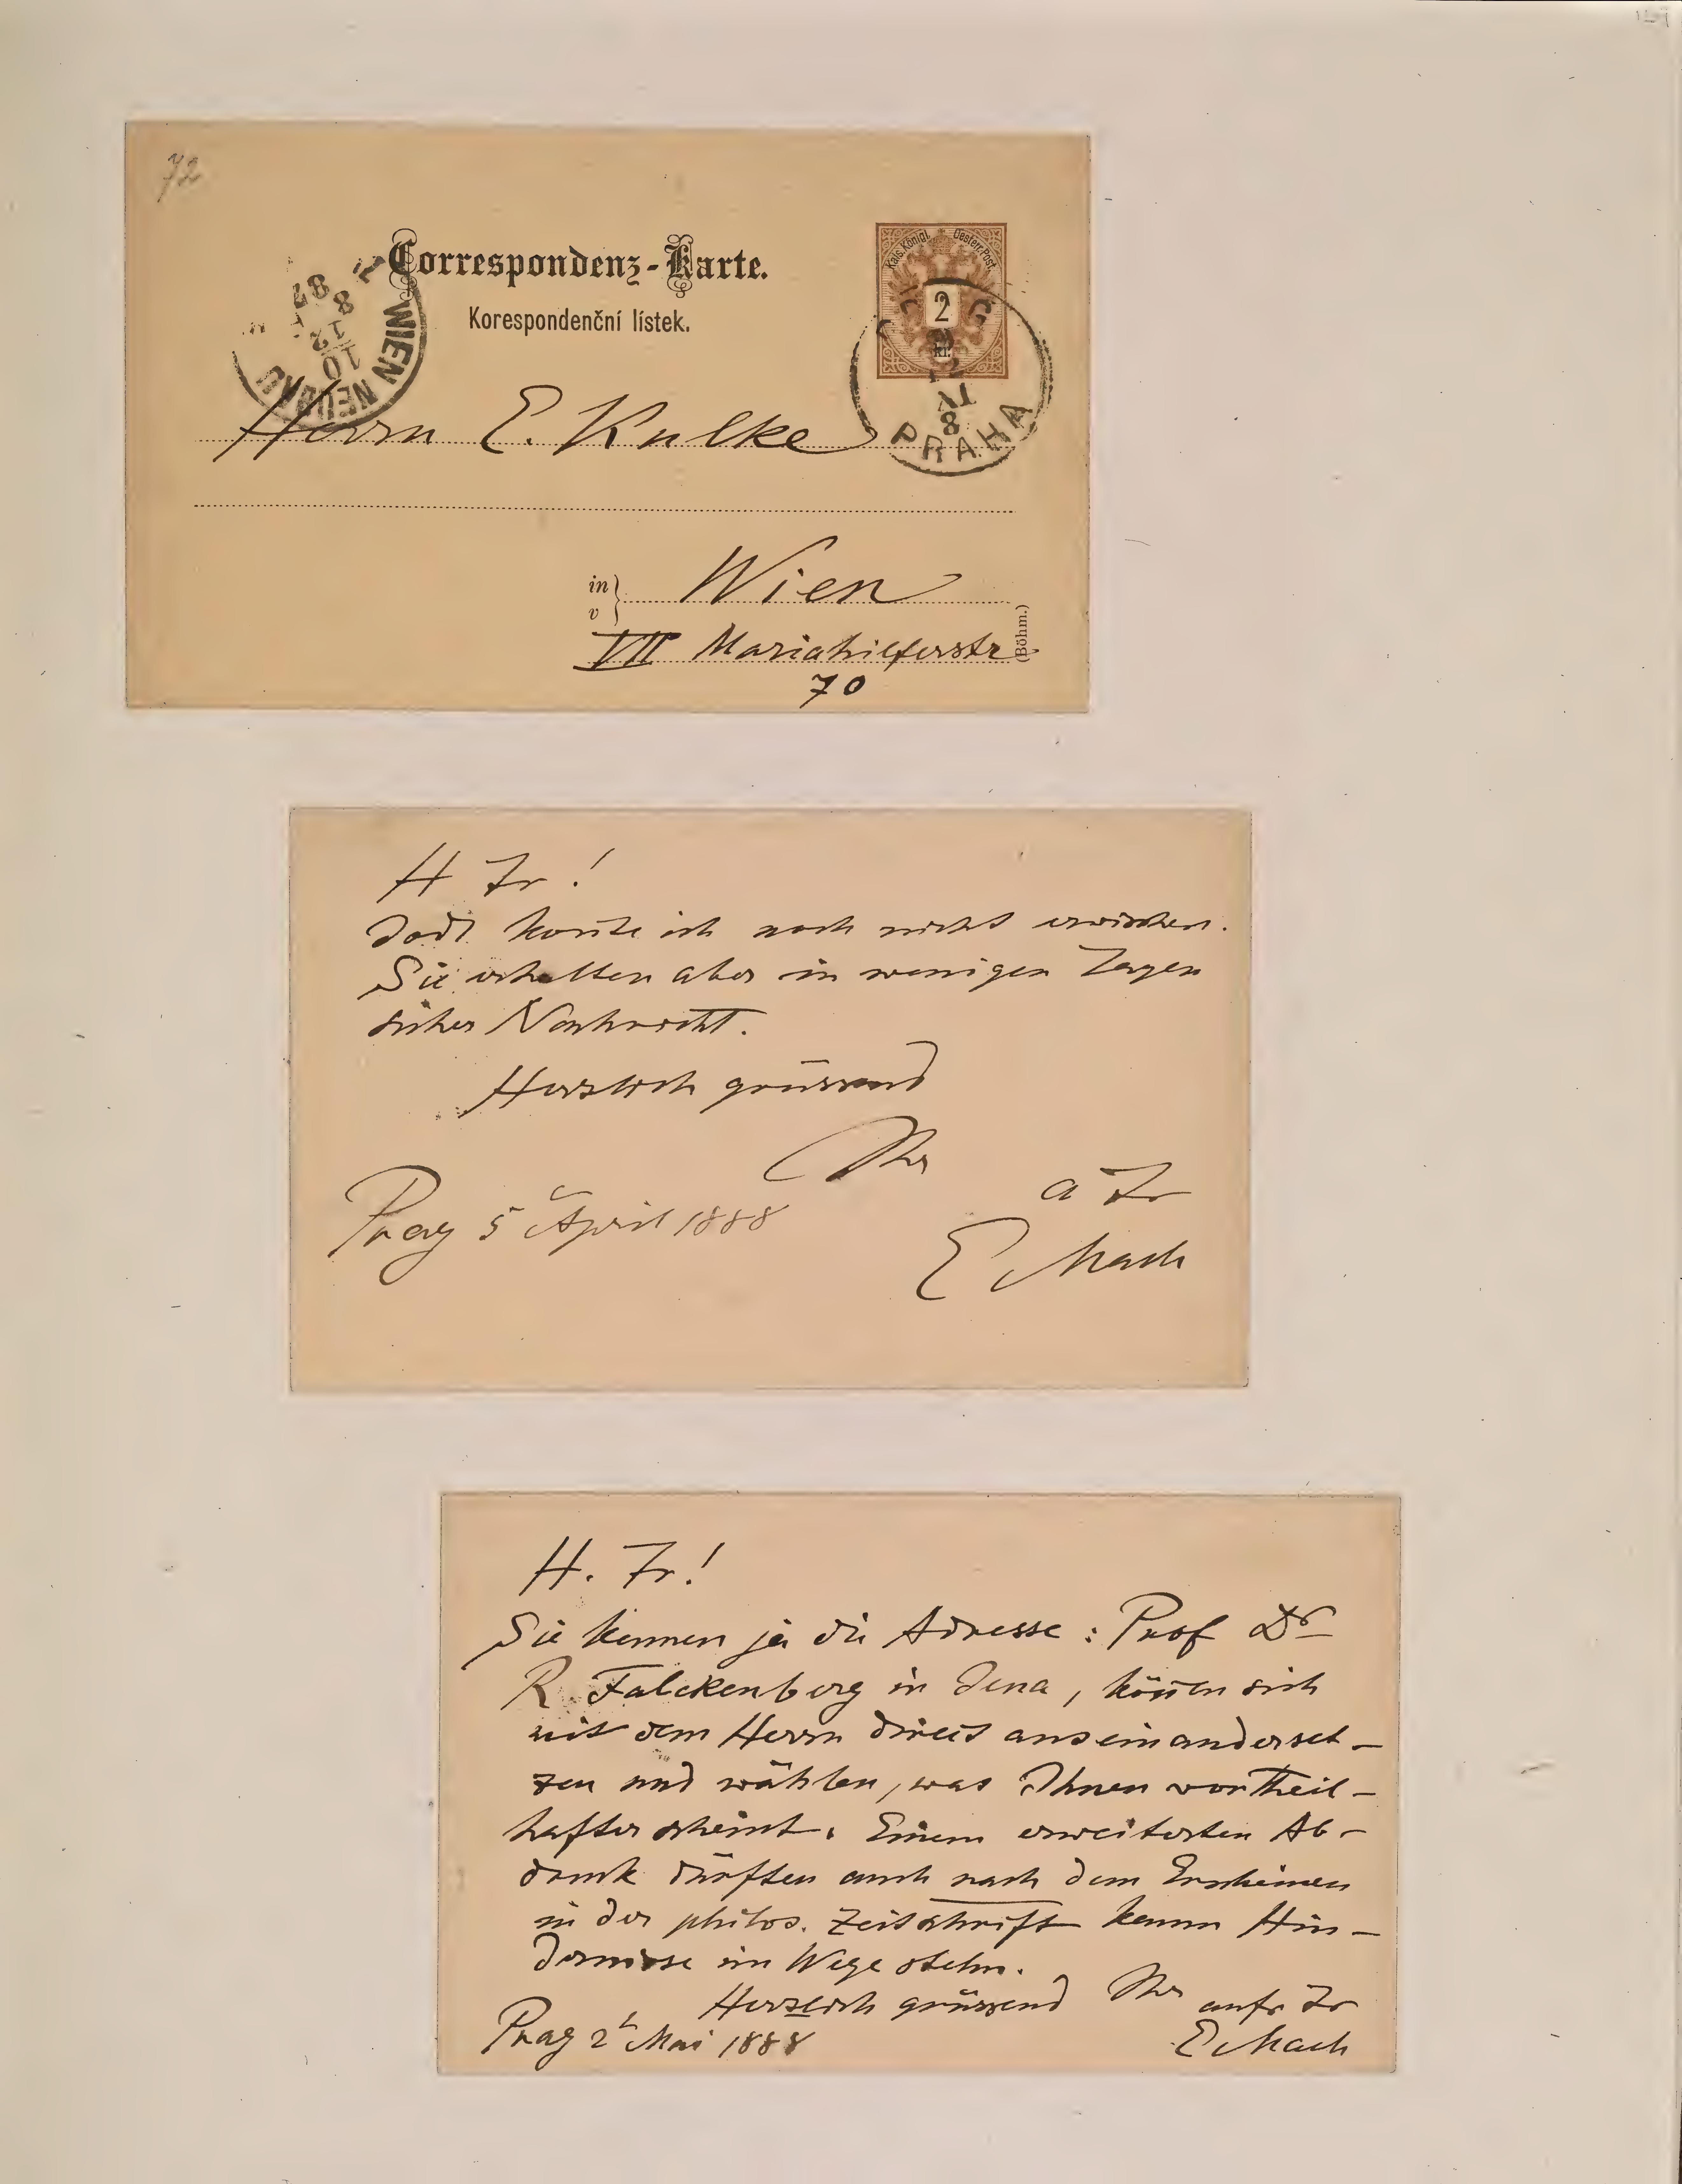 72
Correspondenz-Karte.
Korespondenční lístek.
Kais. Königl. Oesterr. Post.
2
kr.
WIEN NEUBAU
10
12
8
87
PRAHA
Herrn E. Kulke
in
v
Wien
(Böhm.)
VII Mariahilferstr
70
H Fr!
Jodl konnte ich noch nicht erwischen.
Sie erhalten aber in wenigen Tagen
sicher Nachricht.
Herzlich grüssend
Ihr
a Fr
Prag 5 April 1888
E Mach
H. Fr!
Sie kennen ja die Adresse: Prof Dr
R. Falckenberg in Jena, können sich
mit dem Herrn direct auseinanderset-
zen und wählen, was Ihnen vortheil-
hafter scheint. Einem erweiterten Ab-
druck dürften auch nach dem Erscheinen
in der philos. Zeitschrift kaum Hin-
dernisse im Wege stehn.
Herzlich grüssend Ihr aufr Fr
Prag 2t Mai 1888
E Mach